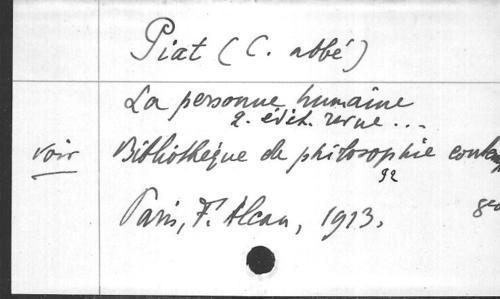 Piat (C. abbé)
La personne humaine
2. édit. revue ...
voir Bibliothèque de philosophie contemp
92
Paris, F. Alcan, 1913.